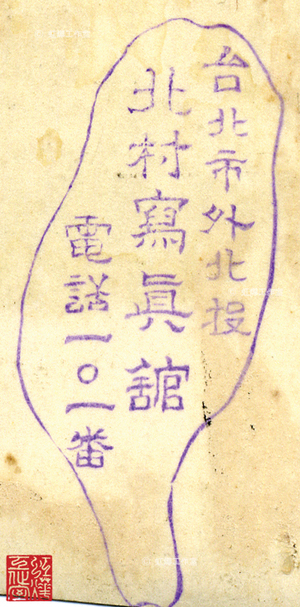 台北市外北投
北村寫眞館
電話一〇一番